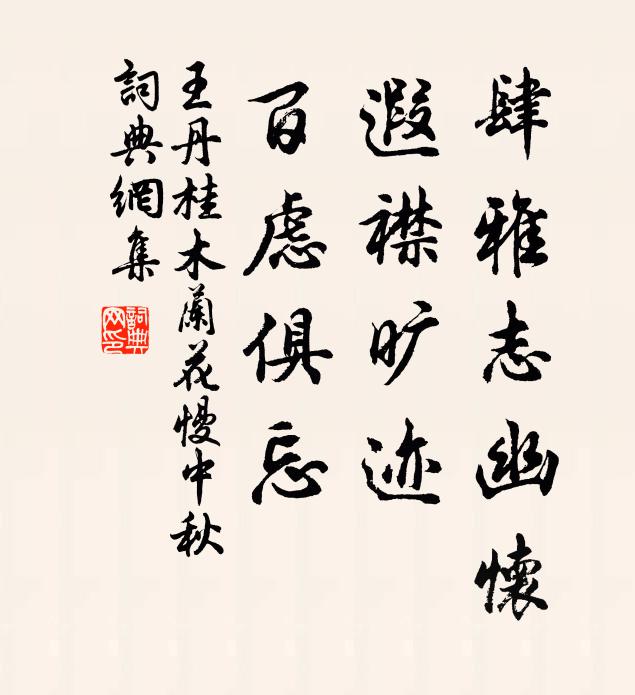 肆雅志幽懷
遐襟旷迹
百慮俱忘
王丹桂木蘭花慢中秋
詞典網集
詞典
网印